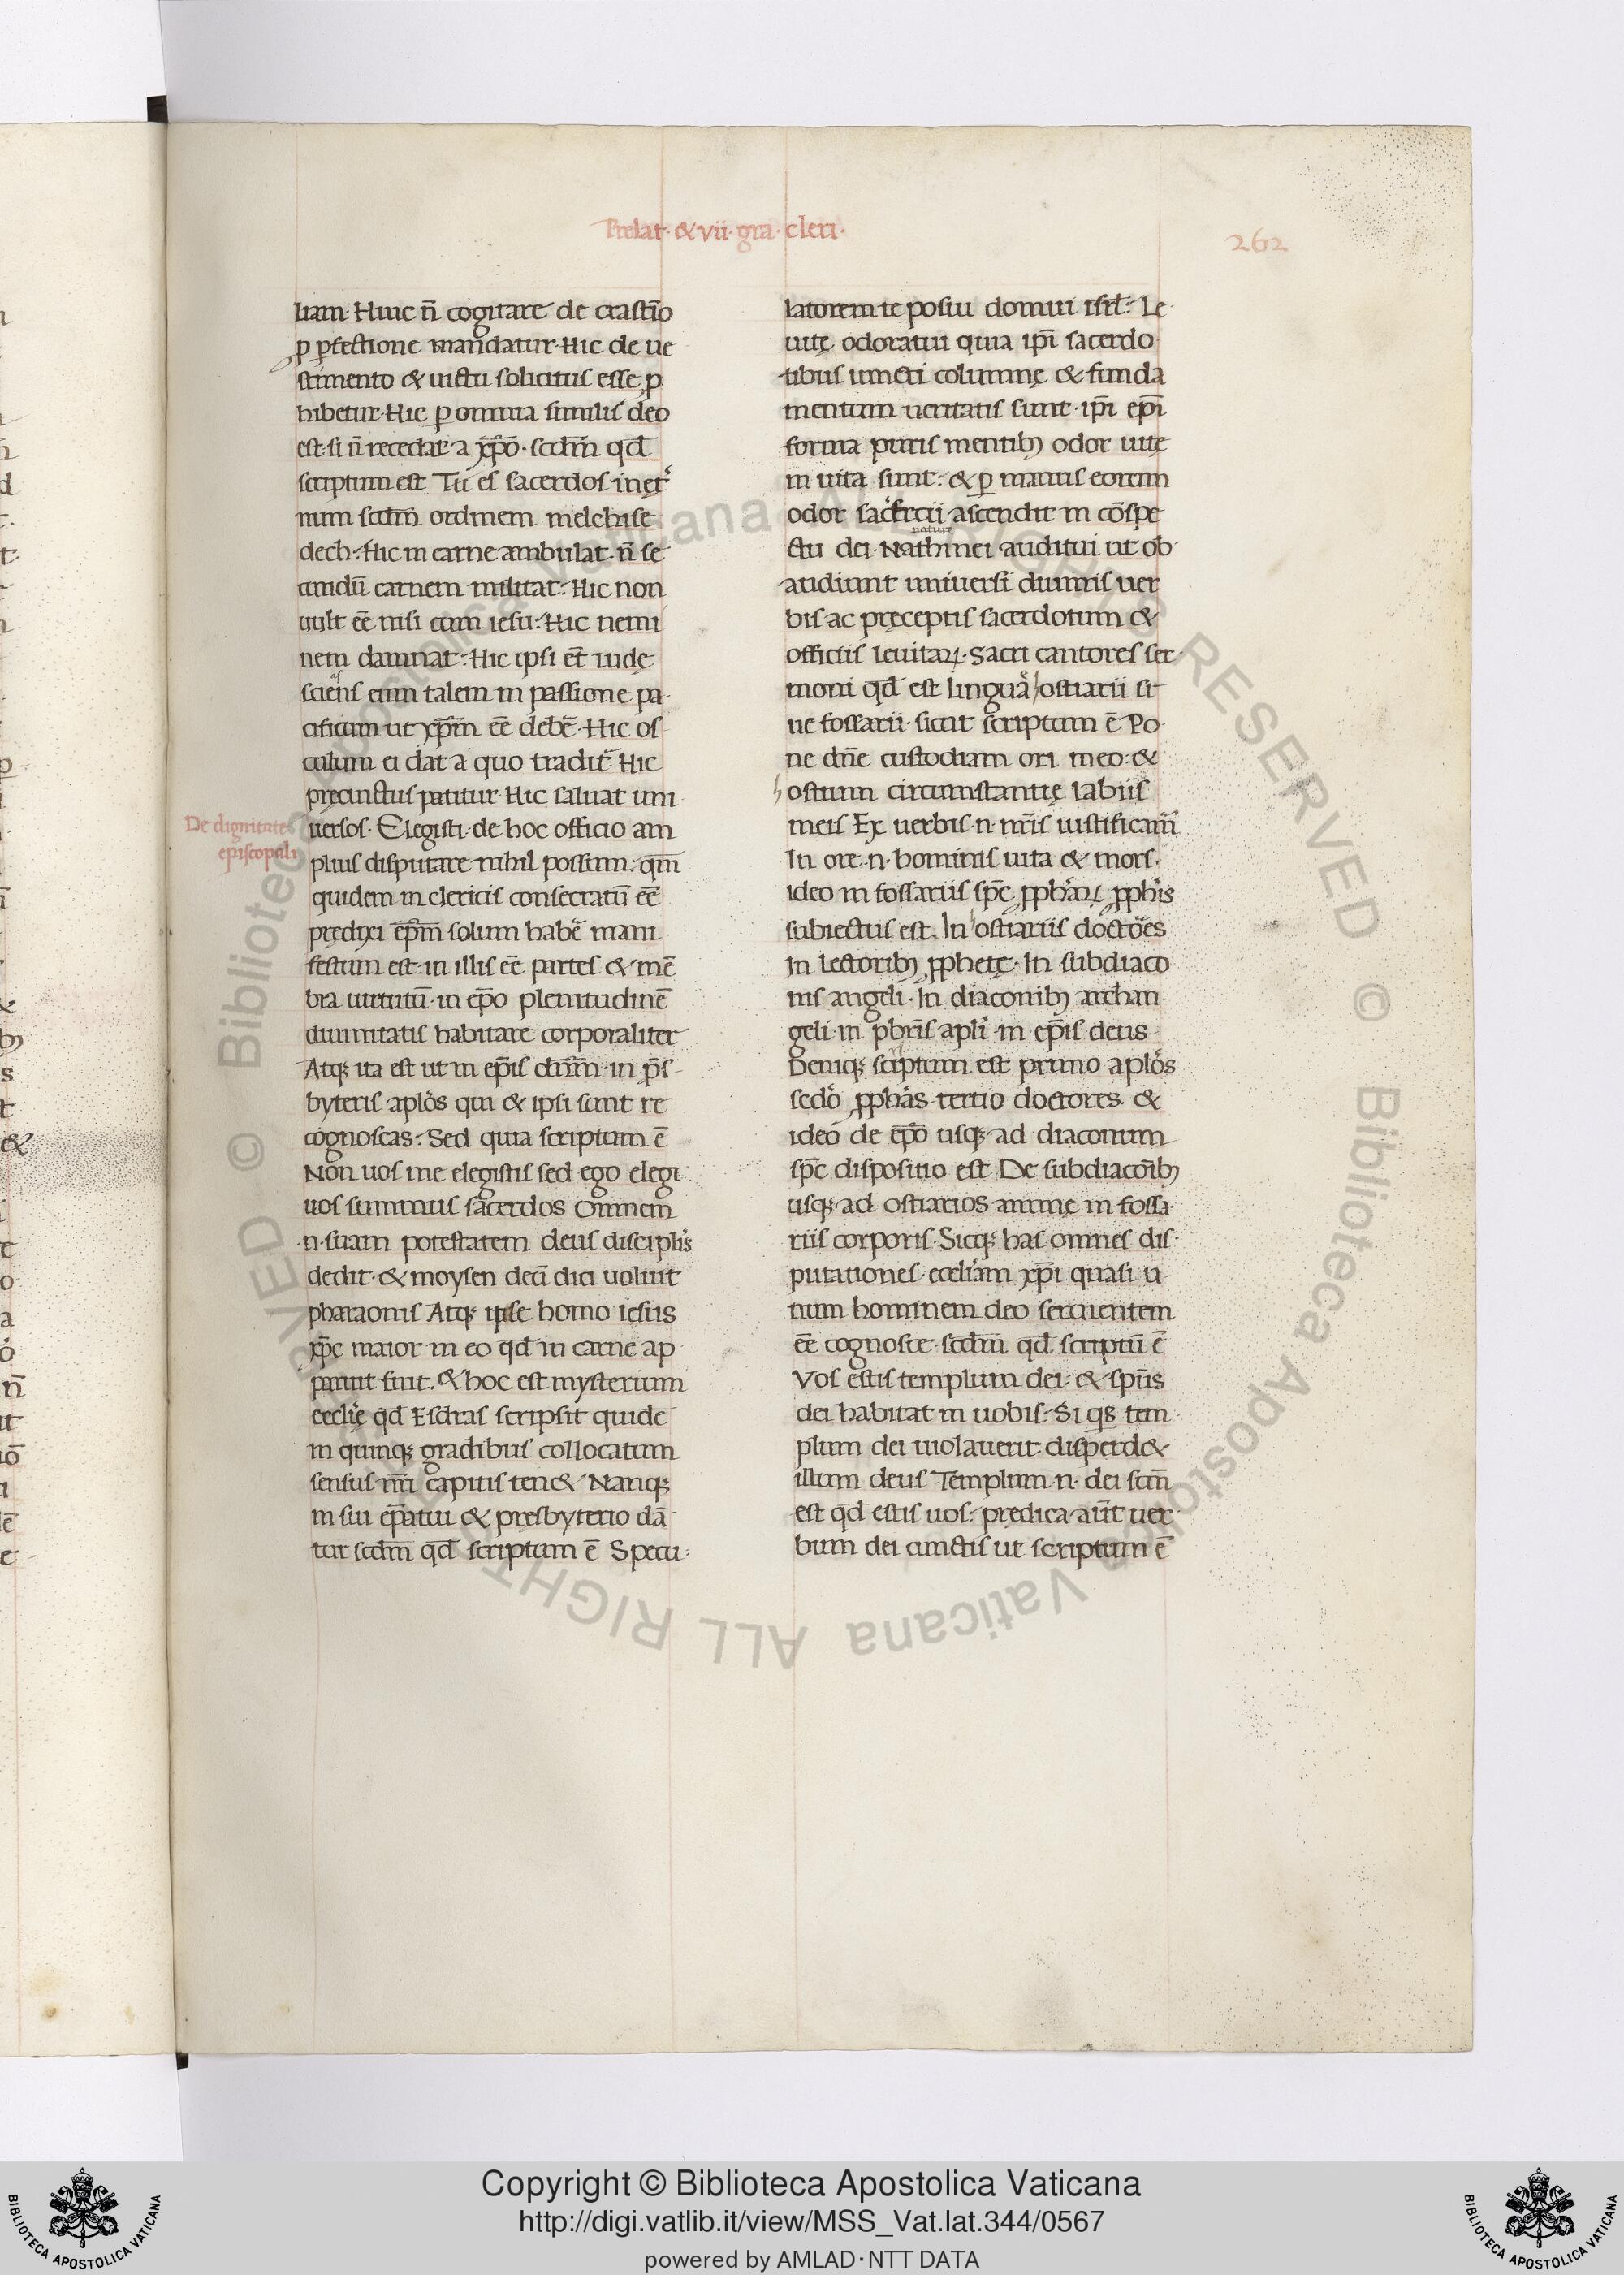 Prelat· & vii· gra· cleri·
262
liam· Huic n̄ cogitare de crastīo
ꝓ ꝑfectione mandatur· Hic de ue
stimento & uictu solicitus esse ꝓ
hibetur· Hic ꝑ omnia similis deo
est· si n̄ recedat a xp̄o· scdm̄ qd̄
scriptum est Tu es sacerdos in ęt̾
num scdm̄ ordinem melchise
dech· Hic in carne ambulat· n̄ se
cundū carnem militat: Hic non
uult ēē nisi cum iesu: Hic nemi
nem damnat: Hic ipsi et̄ iudę
sciens eum talem in passione pa
cificum ut xp̄m ēē debē· Hic os
culum ei dat a quo tradit̾ Hic
pręcinctus patitur· Hic saluat uni
De dignitate
episcopali
uersos· Elegisti de hoc officio am
plius disputare nihil possum: qm̄
quidem in clericis consecratū ēē
prędixi ep̄m solum habē mani
festum est· in illis ēē partes & mē
bra uirtutū· in ep̄o plenitudinē
diuinitatis habitare corporaliter
Atq; ita est ut in ep̄is dn̄m· in p̄s
byteris aplōs qui & ipsi sunt re
cognoscas: Sed quia scriptum ē
Non uos me elegistis sed ego elegi
uos summus sacerdos Omnem
·n· suam potestatem deus discipl̾is
dedit· & moysen deū dici uoluit
pharaonis Atq; ipse homo iesus
xp̄c maior in eo qd̄ in carne ap
paruit fuit. & hoc est mysterium
eccl̾ię qd̄ Esdras scripsit quide
in quinq; gradibus collocatum
sensus nr̄i capitis ten& Nanq;
in sui ep̄atui & presbyterio dā
tur scdm̄ qd̄ scriptum ē Specu·
latorem te posui domui isrl̄: Le
uitę odoratui quia ip̄i sacerdo
tibus iuncti columnę & funda
mentum ueritatis sunt· ip̄i ep̄i
forma puris mentibꝫ odor uitę
in uita sunt: & ꝑ manus eorum
odor sac̾ficii ascendit in cōspe
ctu dei· Nathinei auditui ut ob
audiunt uniuersi diuinis uer
bis ac pręceptis sacerdotum &
officiis leuitaꝝ· Sacri cantores ser
moni qd̄ est lingua ostiarii si
ue fossarii· sicut scriptum ē Po
ne dn̄e custodiam ori meo: &
ostium circumstantię labiis
meis Ex uerbis ·n· nr̄is iustificam̾
In ore ·n· hominis uita & mors·
ideo in fossariis sp̄c ꝓph̾aꝝ ꝓph̾is
subiectus est· In ostiariis doctōes
In lectoribꝫ ꝓphetę· In subdiaco
nis angeli· In diaconibꝫ archan
geli· in pbr̄is apl̾i in ep̄is deus
Deniq; sc̾iptum est primo aplōs
sedō ꝓphās tertio doctores &
ideo de ep̄o usq; ad diaconum
sp̄c dispositio est De subdiacōibꝫ
usq; ad ostiarios animę in fossa·
riis corporis· Sicq; has omnes dis·
putationes· eccl̾iam xp̄i quasi u
num hominem deo seruientem
ēē cognosce· scdm̄ qd̄ scriptū ē
Vos estis templum dei· & spūs
dei habitat in uobis: Si qs tem
plum dei uiolauerit disperd&
illum deus Templum ·n· dei scm̄
est qd̄ estis uos: prędica aūt uer
bum dei cunctis ut scriptum ē
© Biblioteca Apostolica Vaticana ALL RIGHTS RESERVED © Biblioteca Apostolica Vaticana ALL RIGHTS RESERVED
Copyright © Biblioteca Apostolica Vaticana
http://digi.vatlib.it/view/MSS_Vat.lat.344/0567
powered by AMLAD·NTT DATA
BIBLIOTECA APOSTOLICA VATICANA
BIBLIOTECA APOSTOLICA VATICANA